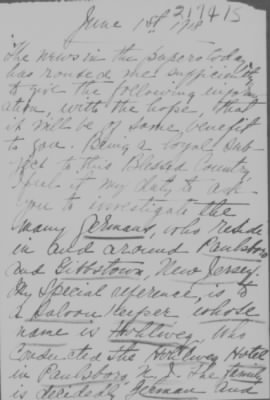 217415
June 1st 1918
The news in the papers today
has roused me sufficient
to give the following inform
ation, with the hope, that
it will be of some benefit
to you. Being a loyal sub
ject to this Blessed Country
I feel it my duty to ask
you to investigate the
many Germans, who reside
in and around Paulsboro
and Gibbstown, New Jersey.
My special reference, is to
a Saloon Keeper whose
name is Hohlweg, who
conducted the Hohlweg Hotel
in Paulsboro N.J. The family
is decidedly German and